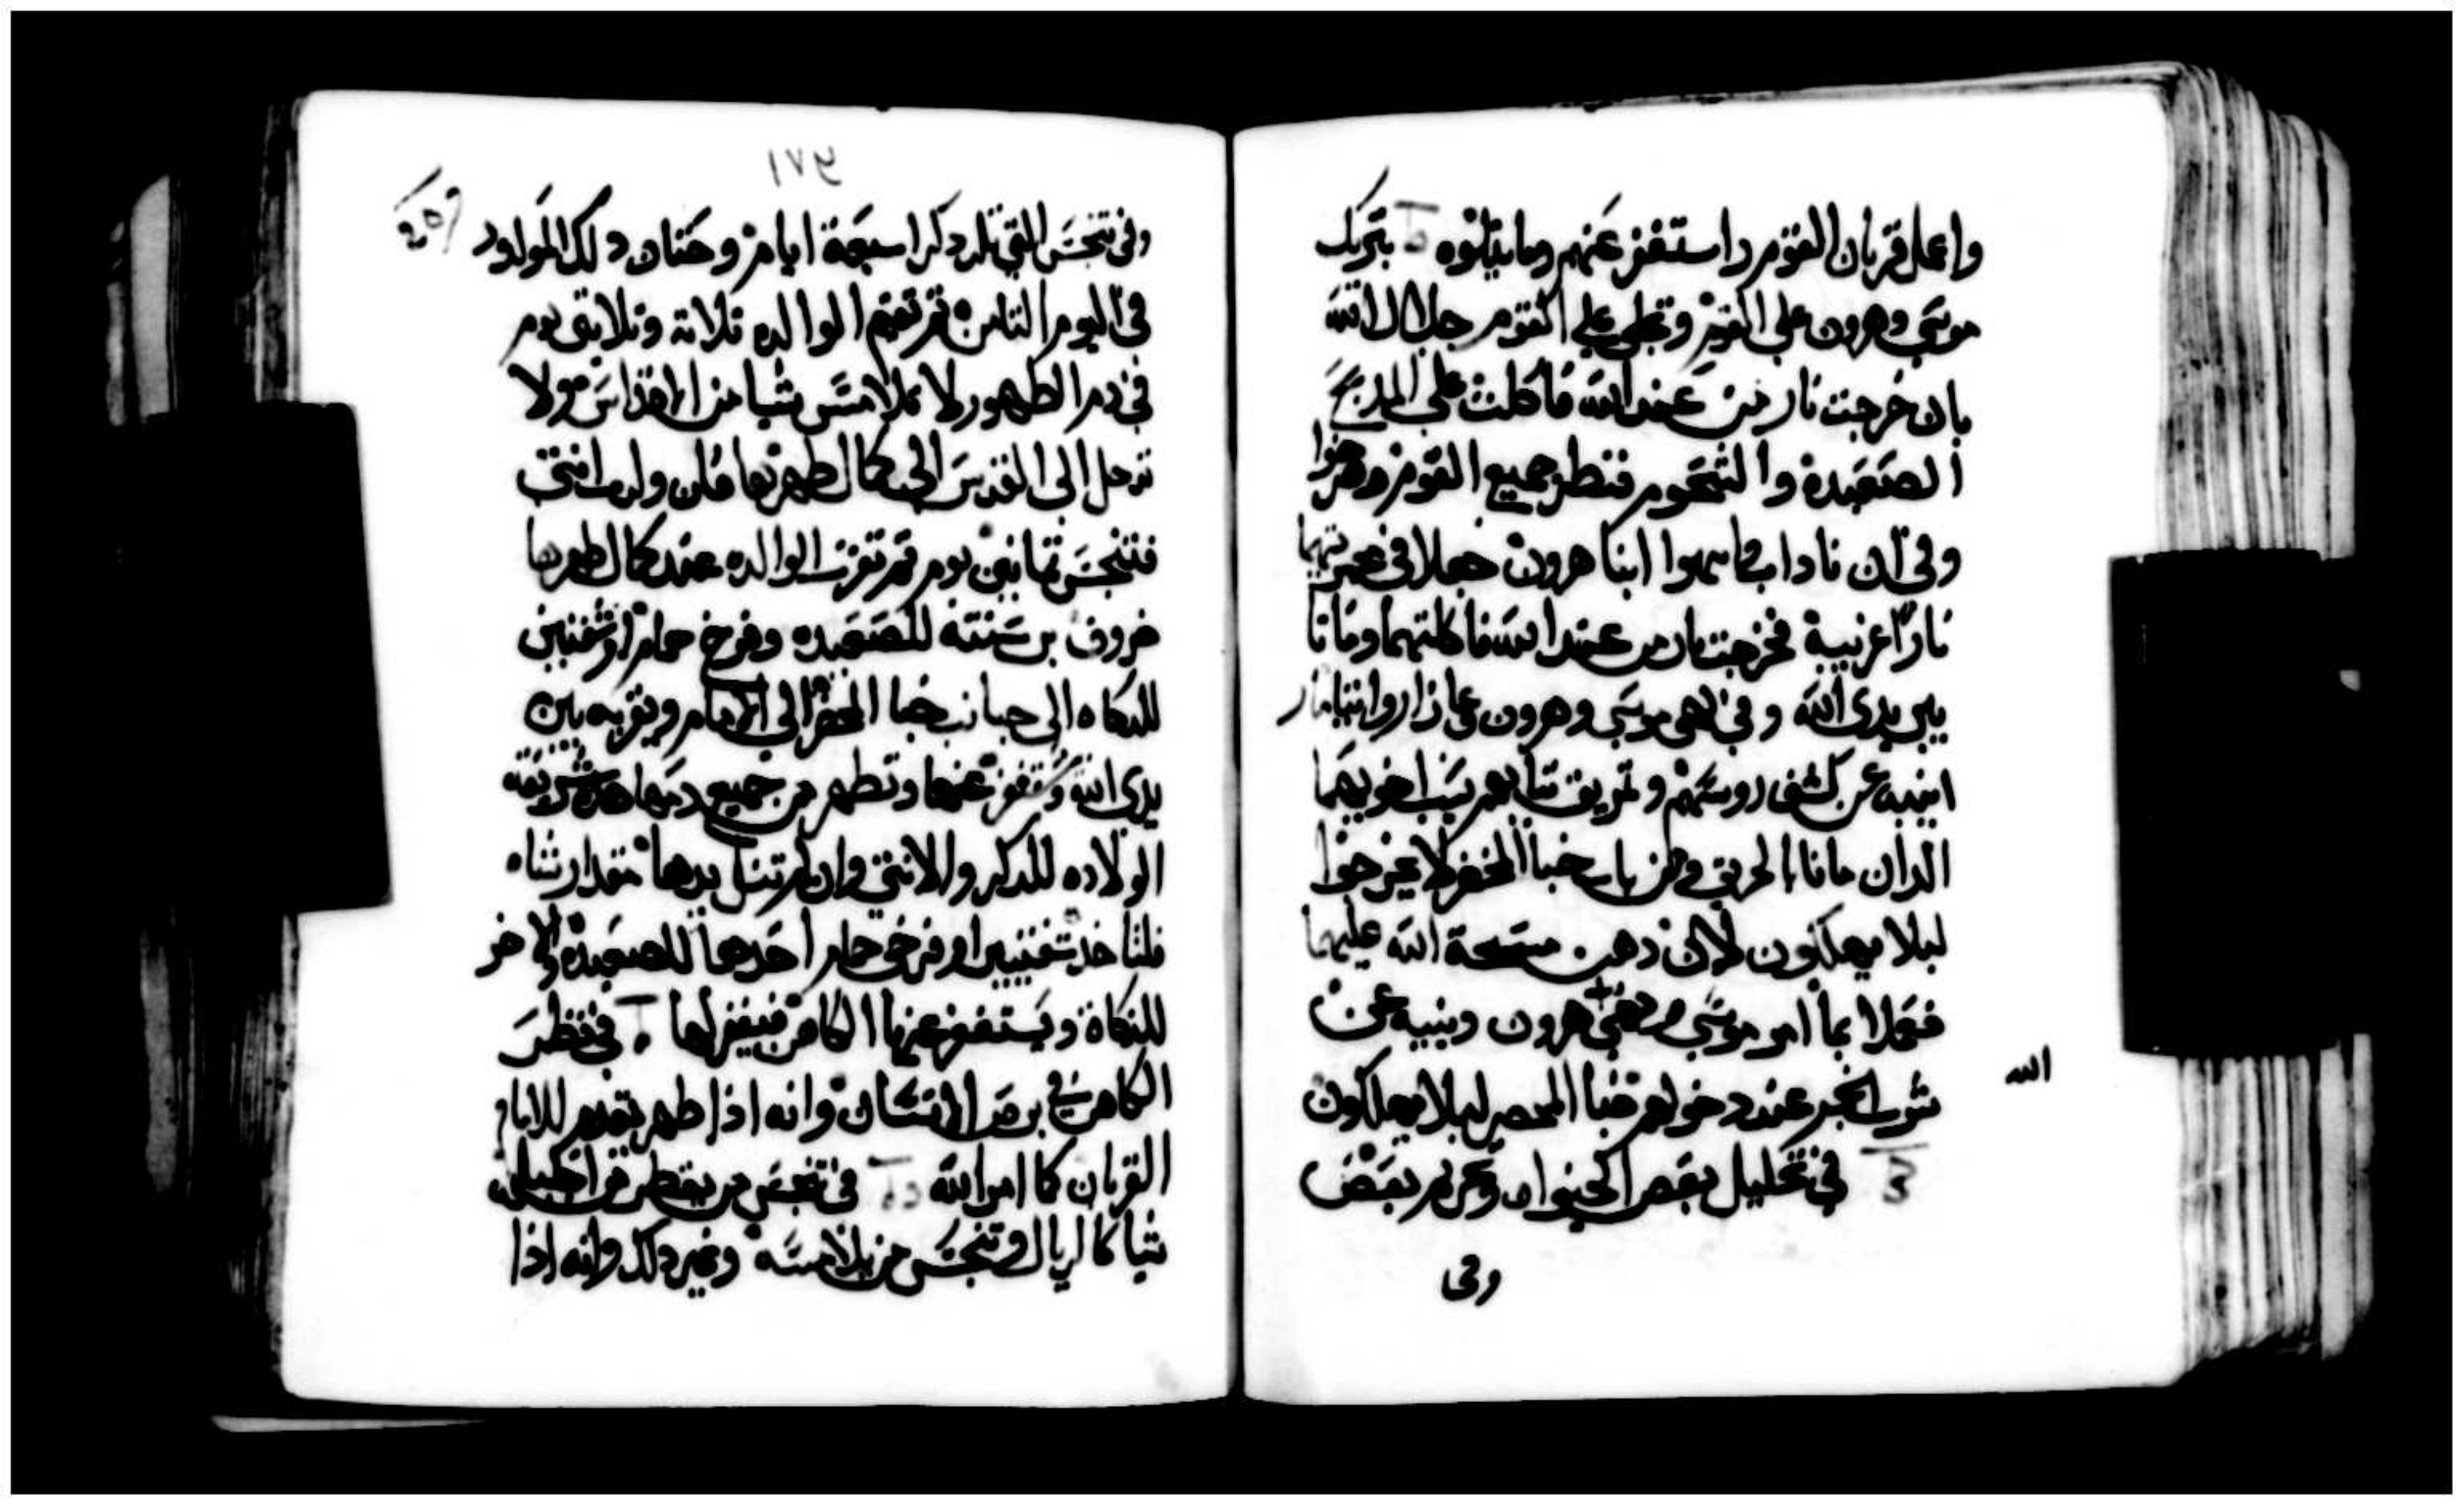 واعمل قربان القوم واستغفر عنهم وما يتلوه بتبريك
موسى وهرون على القوم وتجلى على القوم جلال الله
بان خرجت نار من عند الله فاكلت على المدبح
الصعيدة والشحوم فنطر جميع القوم
وفى ان ناداب وابيهوا ابنا هرون جعلا فى مجمرتيهما
نارًا غريبة فخرجت نار من عند الله فاكلتهما وماتا
بين يدى الله وفى نهى موسى وهرون عازار وايتامار
ابنيه عن كشف روسهم وتمزيق تيابهم بسبب اخويهما
الدان ماتا بالحريق ومن باب خبا المحضر لا يخرجوا
ليلا يهلكون لان دهن مسحة الله عليهما
فعملا بما امر موسى ونهى هرون وبنيه عن
شرب الخمر عند دخولهم خبا المحضر ليلا يهلكون
الله
في تحليل بعض الحيوان وتحريم بعض
وفى
٤٧١
وفى تنجس التى تلد دكرا سبعة ايام وختان دلك المولود
فى اليوم التامن تم تقيم الوالده تلاتة وتلاتين يوم
فى دم الطهور لا تلامس شيا من الاقداس ولا
تدخل الى القدس الى كمال طهرتها فان ولدت انتى
فتنجس تمانين يوم تم تقرب الوالده عند كمال طهرها
خروف بن سنته للصعيده وفرخ حمام او شفنين
للدكاه الى جانب خبا المحضر الى الامام ويقربه بين
يدى الله ويستغفر عنها وتطهر من جميع دمها هده شريعة
الولاده للدكر والانتى وان لم تنل يدها مقدار شاه
فلتاخد شفنينين او فرخى حمام احدهما للصعيدة والاخر
للدكاة ويستغفر عنها الكاهن فيغفر لها في نظر
الكاهن في برص الانسان وانه اذا طهر يقدم للامام
القربان كما امر الله فى تنجس من يقطر من احليله
شيا كالريال وتنجس من يلامسه وغير دلك وانه اذا